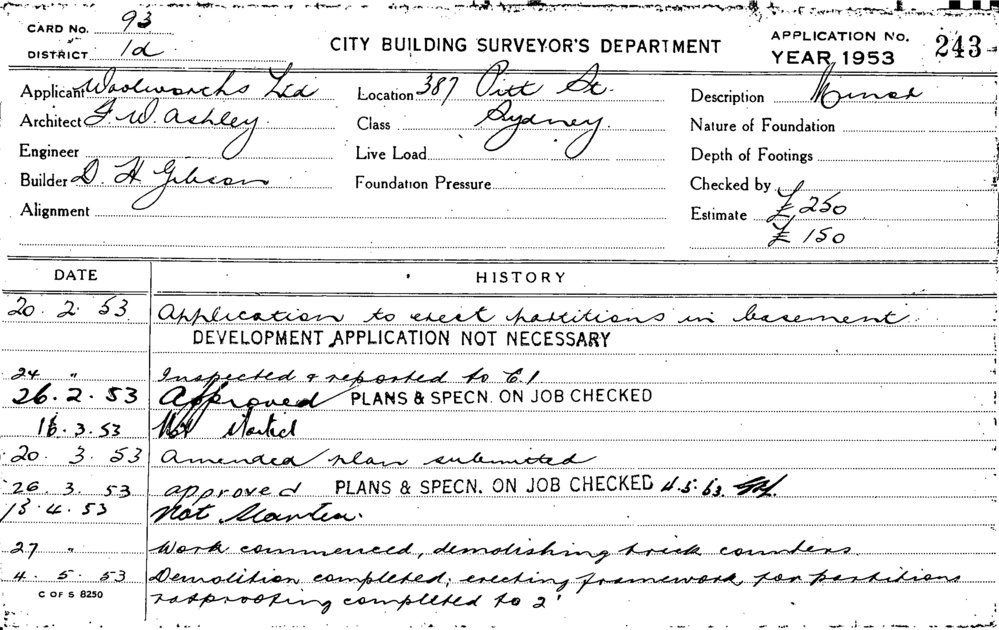 CARD No. 93
DISTRICT 1d
CITY BUILDING SURVEYOR'S DEPARTMENT
APPLICATION No. 243
YEAR 1953
Applicant Woolworths Ltd
Location 387 Pitt St.
Description Minor
Architect F. W. Ashley.
Class Sydney
Nature of Foundation
Engineer
Live Load
Depth of Footings
Builder D H Gibson
Foundation Pressure
Checked by
Alignment
Estimate £ 250
£ 150
DATE HISTORY
20. 2. 53 Application to erect partitions in basement.
DEVELOPMENT APPLICATION NOT NECESSARY
24 " Inspected & reported to C.I
26. 2. 53 Approved PLANS & SPECN. ON JOB CHECKED
16. 3. 53 Not started
20. 3. 53 Amended plan submitted
26. 3. 53 approved PLANS & SPECN. ON JOB CHECKED 4.5.53
13. 4. 53 Not Started.
27 " Work commenced, demolishing brick counters.
4. 5. 53 Demolition completed; erecting framework for partitions
ratproofing completed to 2'
C OF S 8250